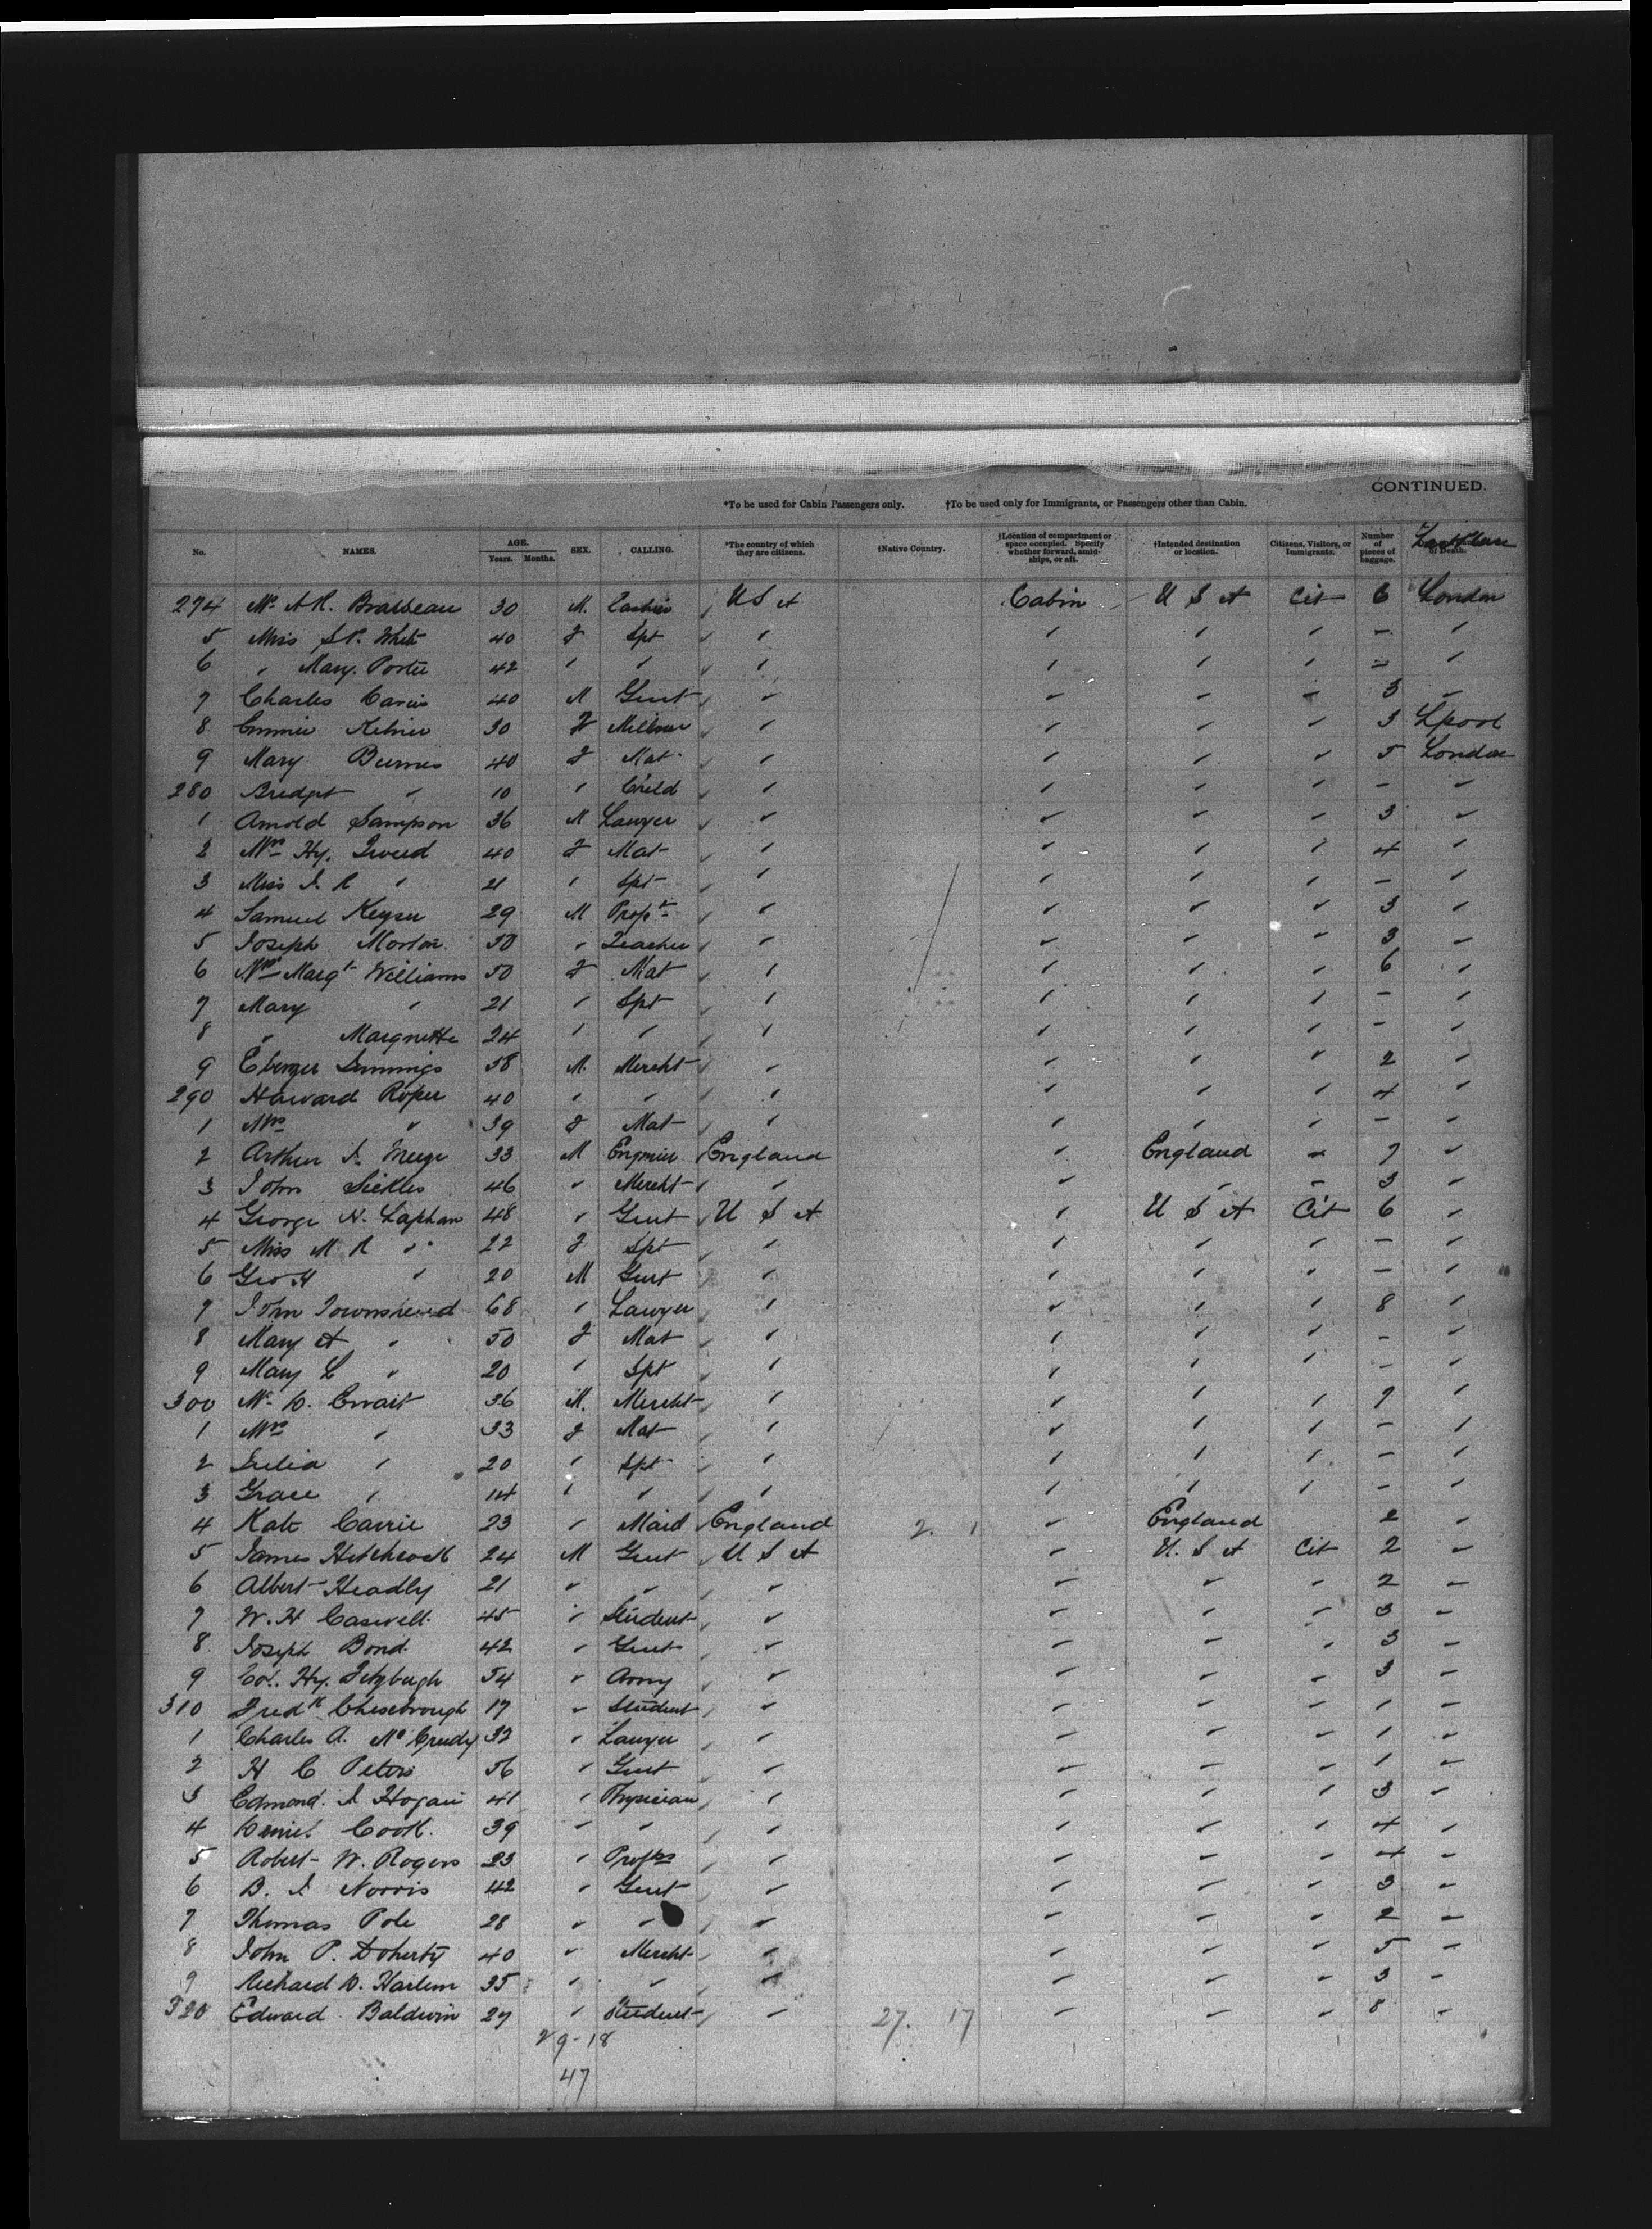 CONTINUED.
*To be used for Cabin Passengers only. †To be used only for Immigrants, or Passengers other than Cabin.
No. NAMES. AGE. Years. Months. SEX. CALLING. *The country of which they are citizens. †Native Country. †Location of compartment or space occupied. Specify whether forward, amidships, or aft. †Intended destination or location. Citizens, Visitors, or Immigrants. Number of pieces of baggage. of Death.
274 Mr A R. Brasseau 30 M. U S A Cabin U S A Cit 6 London
5 Miss S P. White 40 F Spt " " " " " - "
6 " Mary Porter 42 " " " " " " - "
7 Charles 40 M Gent " " " " 3 "
8 30 F Milliner " " " " 3 Lpool
9 Mary Burnes 40 F Mat " " " " 5 London
280 Bridget " 10 " Child " " " " - "
1 Arnold Sampson 36 M Lawyer " " " " 3 "
2 Mrs Hy. Tweed 40 F Mat " " " " 4 "
3 Miss I. R " 21 " Spt " " " " - "
4 Samuel Keyser 29 M " " " " 3 "
5 Joseph Morton 30 " Teacher " " " " 3 "
6 Mrs Margt Williams 50 F Mat " " " " 6 "
7 Mary " 21 " Spt " " " " - "
8 " Margnette 24 " " " " " " - "
9 Jennings 58 M. Mercht " " " " 2 "
290 Howard Roper 40 " " " " " " 4 "
1 Mrs " 39 F Mat " " " " - "
2 Arthur 33 M Engineer England " England " 7 "
3 John Sickles 46 " Mercht " " " " 3 "
4 George N. Lapham 48 " Gent U S A " U S A Cit 6 "
5 Miss M R " 22 F Spt " " " " - "
6 Geo H " 20 M Gent " " " " - "
7 John Townshend 68 " Lawyer " " " " 8 "
8 Mary A " 50 F Mat " " " " - "
9 Mary L " 20 " Spt " " " " - "
300 Mr D. 36 M. Mercht " " " " 7 "
1 Mrs " 33 F Mat " " " " - "
2 Julia " 20 " Spt " " " " - "
3 Grace " 14 " " " " " " - "
4 Kate Carrie 23 " Maid England 2. 1 " England 2 "
5 James Hitchcock 24 M Gent U S A " U. S A Cit 2 "
6 Albert Headly 21 " " " " " " 2 "
7 W. H Caswell 45 " Student " " " " 3 "
8 Joseph Bond 42 " Gent " " " " 3 "
9 Col. Hy. Fitzhugh 54 " Army " " " " 3 "
310 Fredk Chesebrough 17 " Student " " " " 1 "
1 Charles A. Mc Creedy 32 " Lawyer " " " " 1 "
2 H C Peters 56 " Gent " " " " 1 "
3 Edmond I Hogan 41 " Physician " " " " 3 "
4 Daniel Cook 39 " " " " " " 4 "
5 Robert W. Rogers 23 " " " " " 4 "
6 B. I Norris 42 " Gent " " " " 3 "
7 Thomas Pole 28 " " " " " " 2 "
8 John P. Doherty 40 " Mercht " " " " 5 "
9 Richard D. Harlem 35 " " " " " " 3 "
320 Edward Baldwin 27 " Student " 27. 17 " " " 8 "
29-18
47